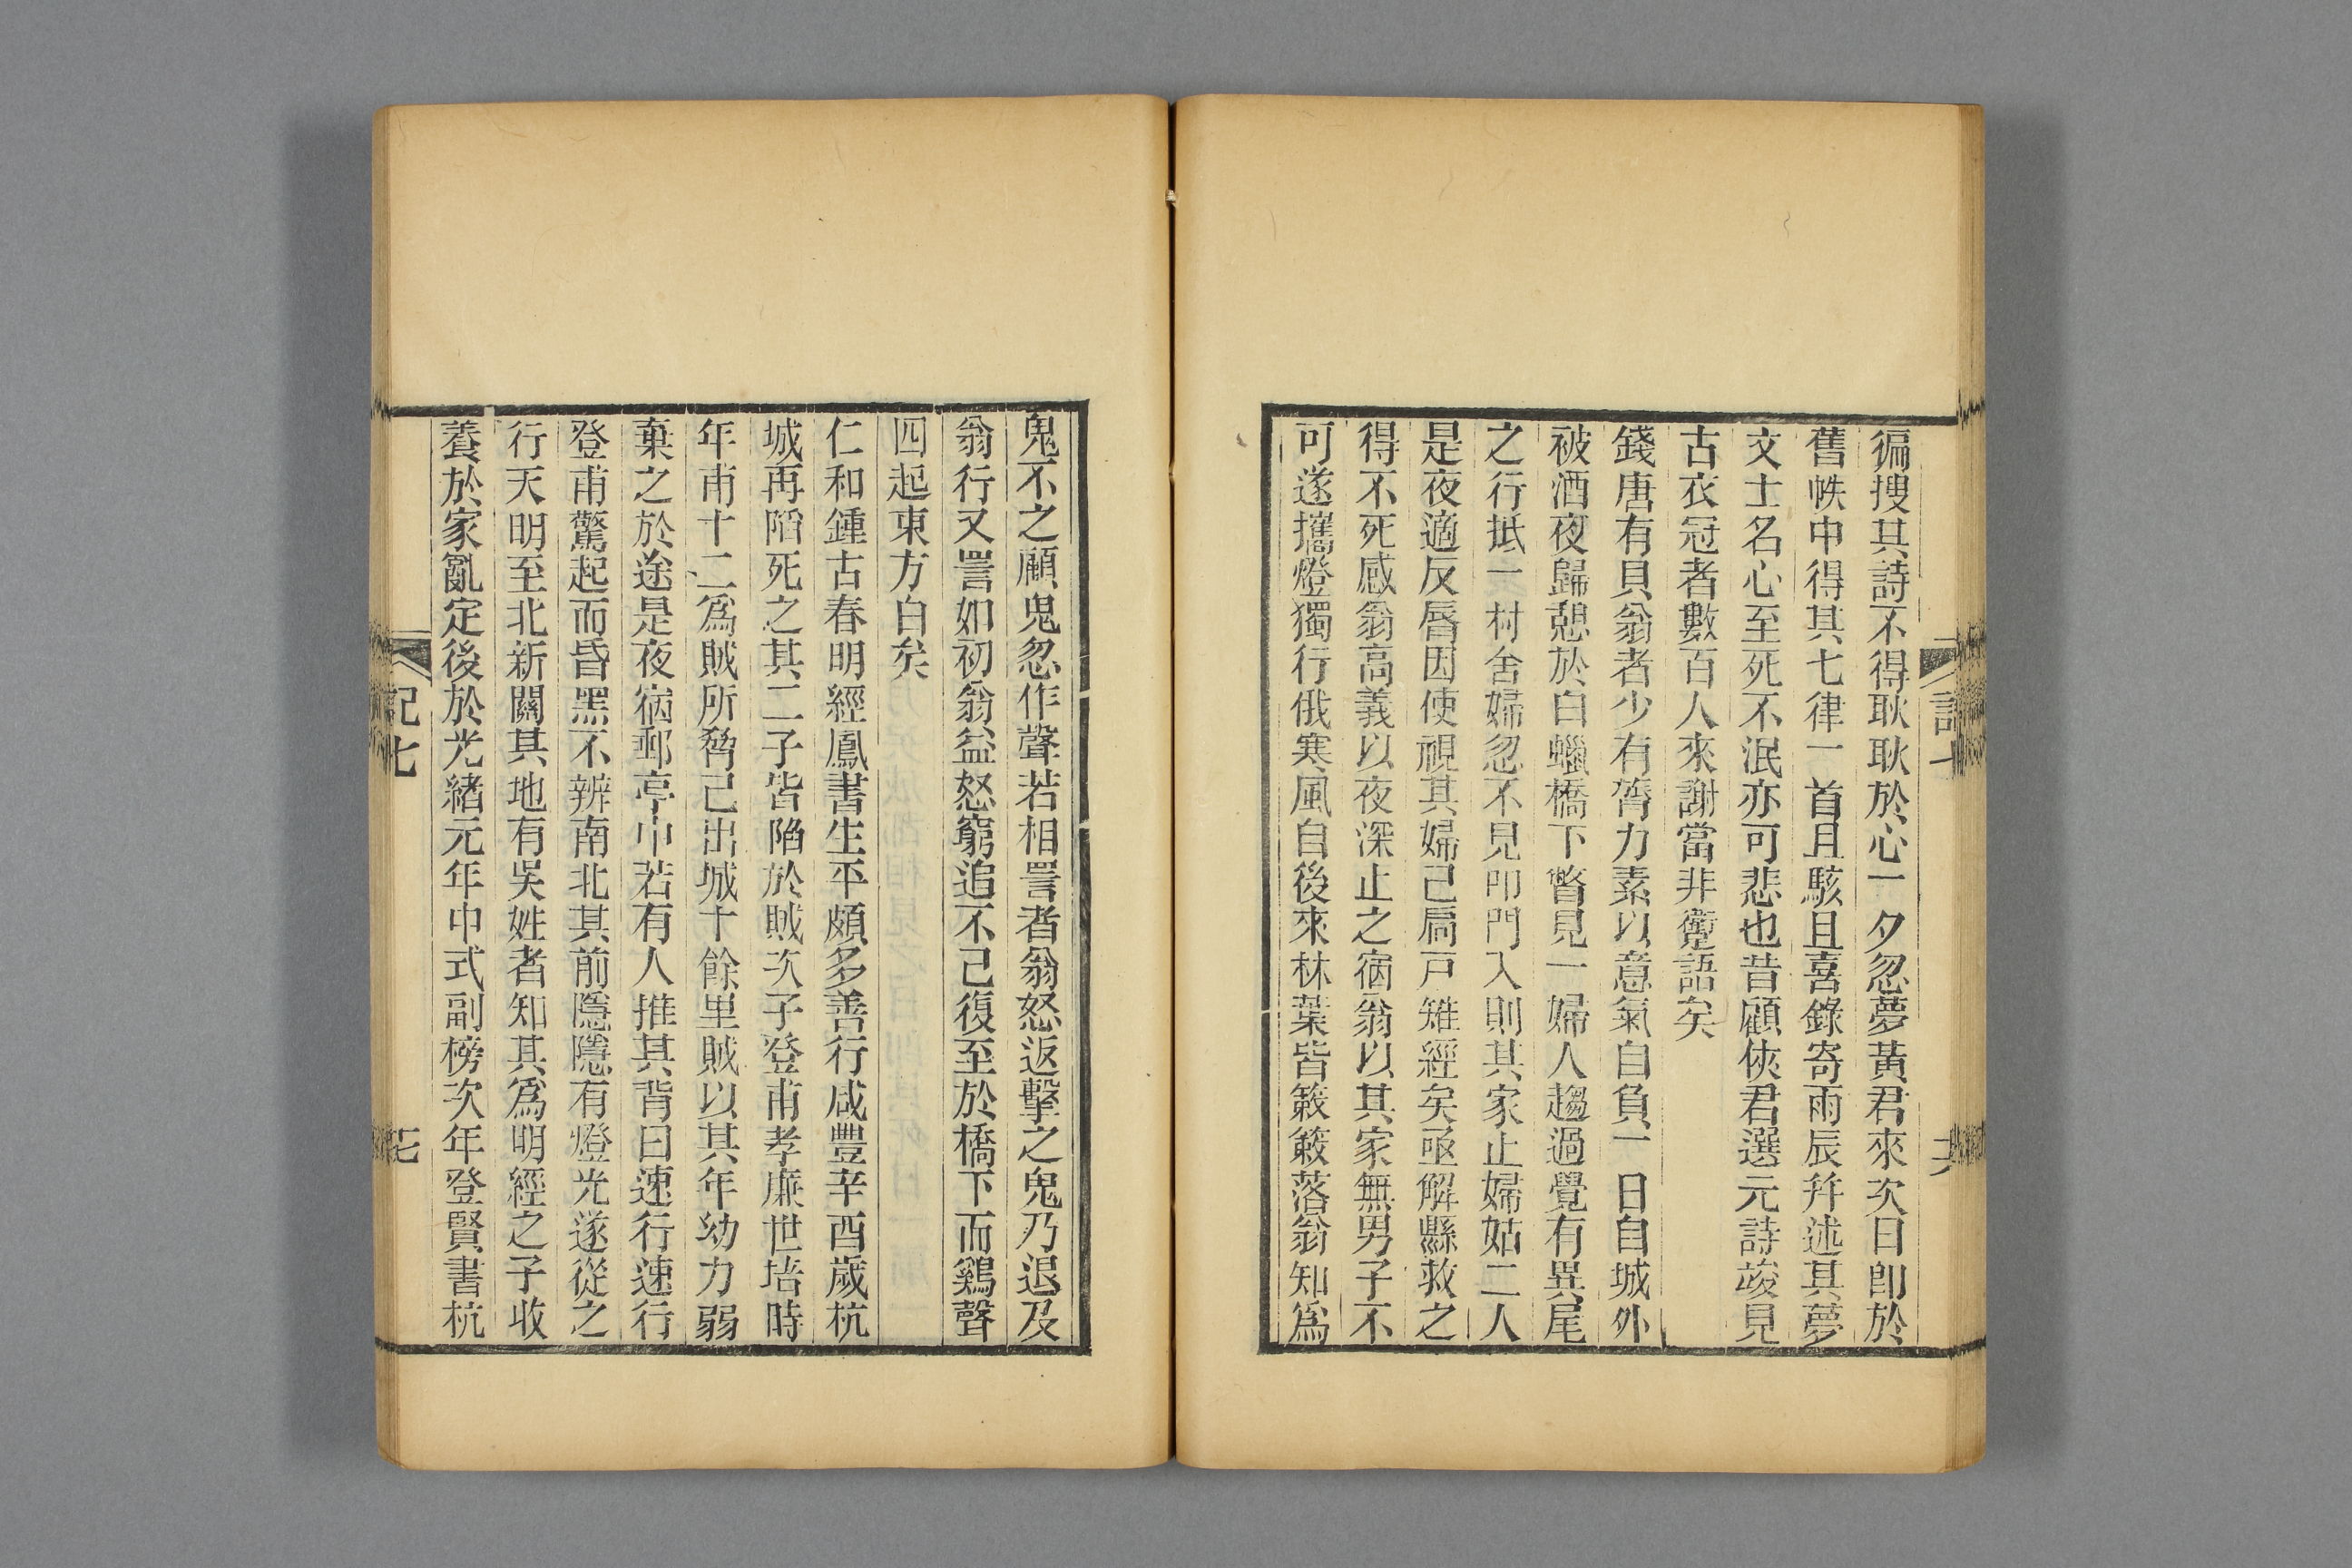 徧搜其詩不得耿耿於心一夕忽夢黃君來次日卽於
舊帙中得其七律一首且駭且喜錄寄雨辰幷述其夢
文士名心至死不泯亦可悲也昔顧俠君選元詩竣見
古衣冠者數百人來謝當非讆語矣
錢唐有貝翁者少有膂力素以意氣自負一日自城外
被酒夜歸憩於白蠟橋下瞥見一婦人趨過覺有異尾
之行抵一村舍婦忽不見叩門入則其家止婦姑二人
是夜適反唇因使視其婦已扃戸雉經矣亟解縣救之
得不死感翁高義以夜深止之宿翁以其家無男子不
可遂攜燈獨行俄寒風自後來林葉皆簌簌落翁知爲
鬼不之顧鬼忽作聲若相詈者翁怒返擊之鬼乃退及
翁行又詈如初翁益怒窮追不已復至於橋下而鷄聲
四起東方白矣
仁和鍾古春明經鳳書生平頗多善行咸豐辛酉歲杭
城再陷死之其二子皆陷於賊次子登甫孝廉世培時
年甫十二爲賊所脅已出城十餘里賊以其年幼力弱
棄之於途是夜宿郵亭中若有人推其背曰速行速行
登甫驚起而昏黑不辨南北其前隱隱有燈光遂從之
行天明至北新關其地有吳姓者知其爲明經之子收
養於家亂定後於光緒元年中式副榜次年登賢書杭
記七